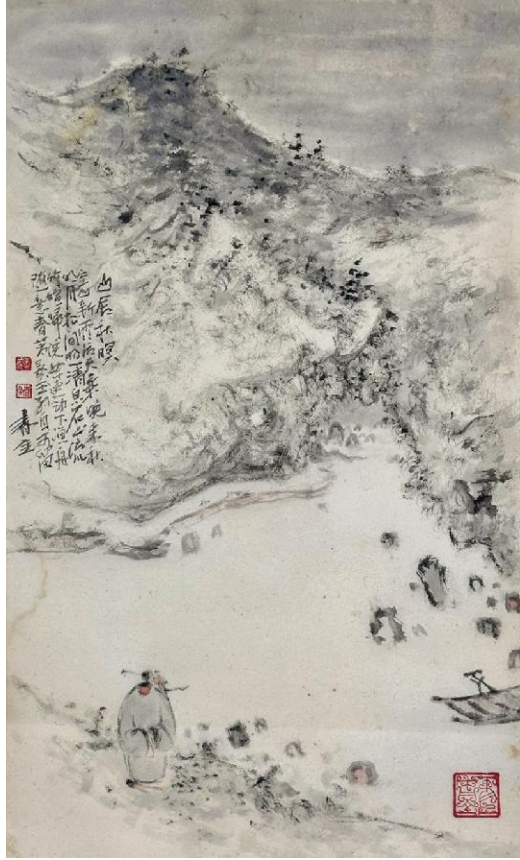 山居秋暝
空山新雨后天氣晚來秋
明月松间照清泉石上流
竹喧歸浣女莲动下渔舟
随意春芳歇王孙自可留